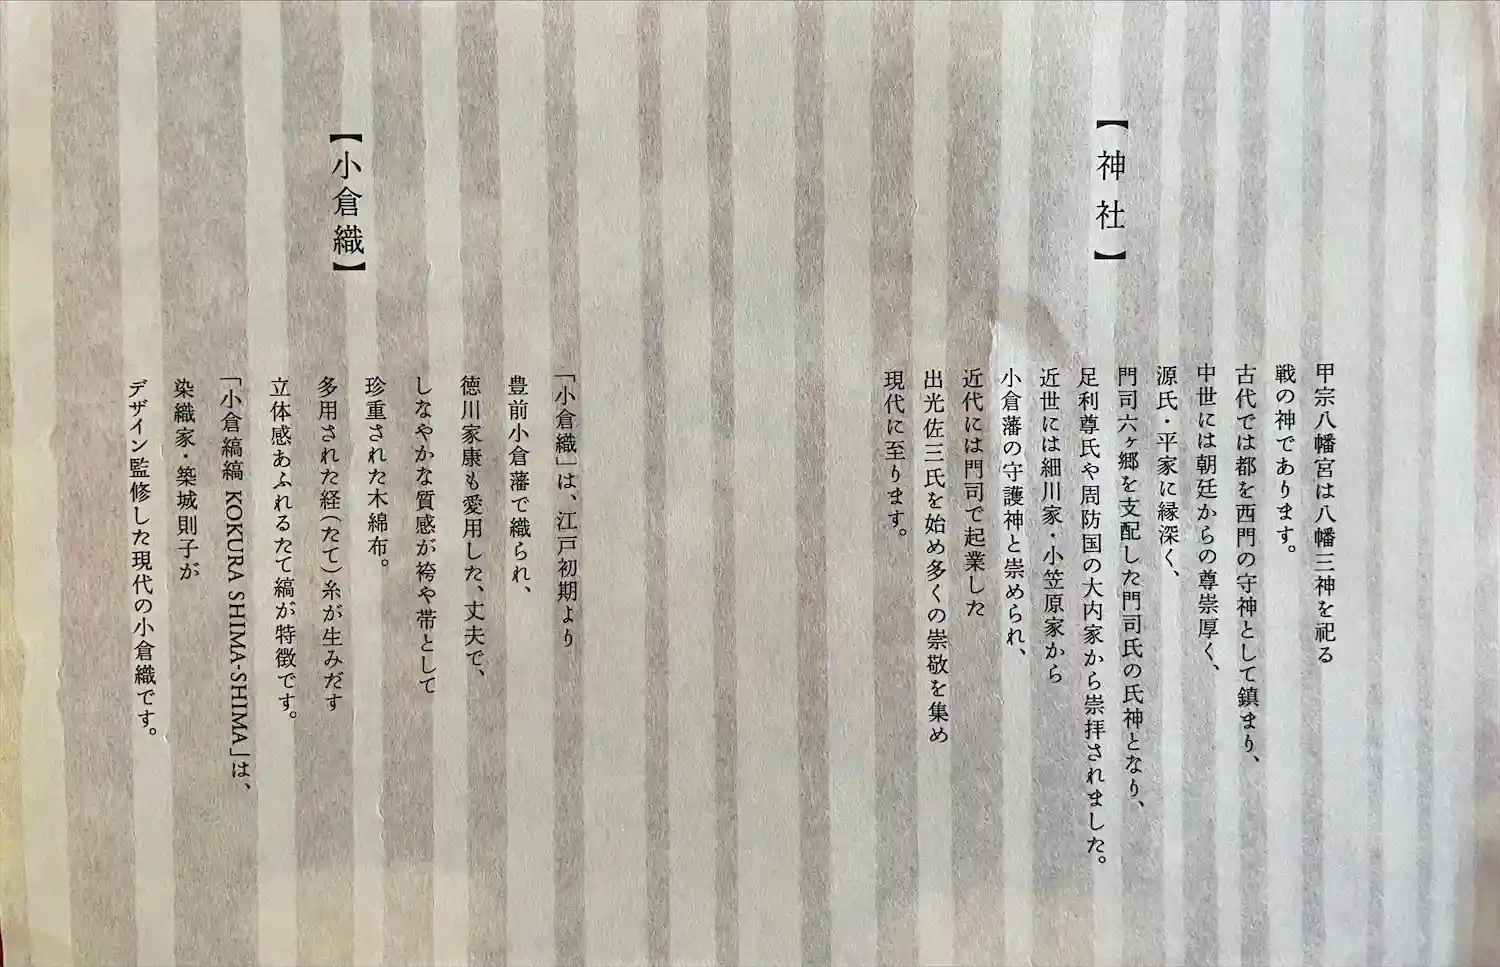 【神社】
甲宗八幡宮は八幡三神を祀る
戦の神であります。
古代では都を西門の守神として鎮まり、
中世には朝廷からの尊崇厚く、
源氏・平家に縁深く、
門司六ヶ郷を支配した門司氏の氏神となり、
足利尊氏や周防国の大内家から崇拝されました。
近世には細川家・小笠原家から
小倉藩の守護神と崇められ、
近代には門司で起業した
出光佐三氏を始め多くの崇敬を集め
現代に至ります。
【小倉織】
「小倉織」は、江戸初期より
豊前小倉藩で織られ、
徳川家康も愛用した、丈夫で、
しなやかな質感が袴や帯として
珍重された木綿布。
多用された経(たて)糸が生みだす
立体感あふれるたて縞が特徴です。
「小倉縞縞 KOKURA SHIMA-SHIMA」は、
染織家・築城則子が
デザイン監修した現代の小倉織です。